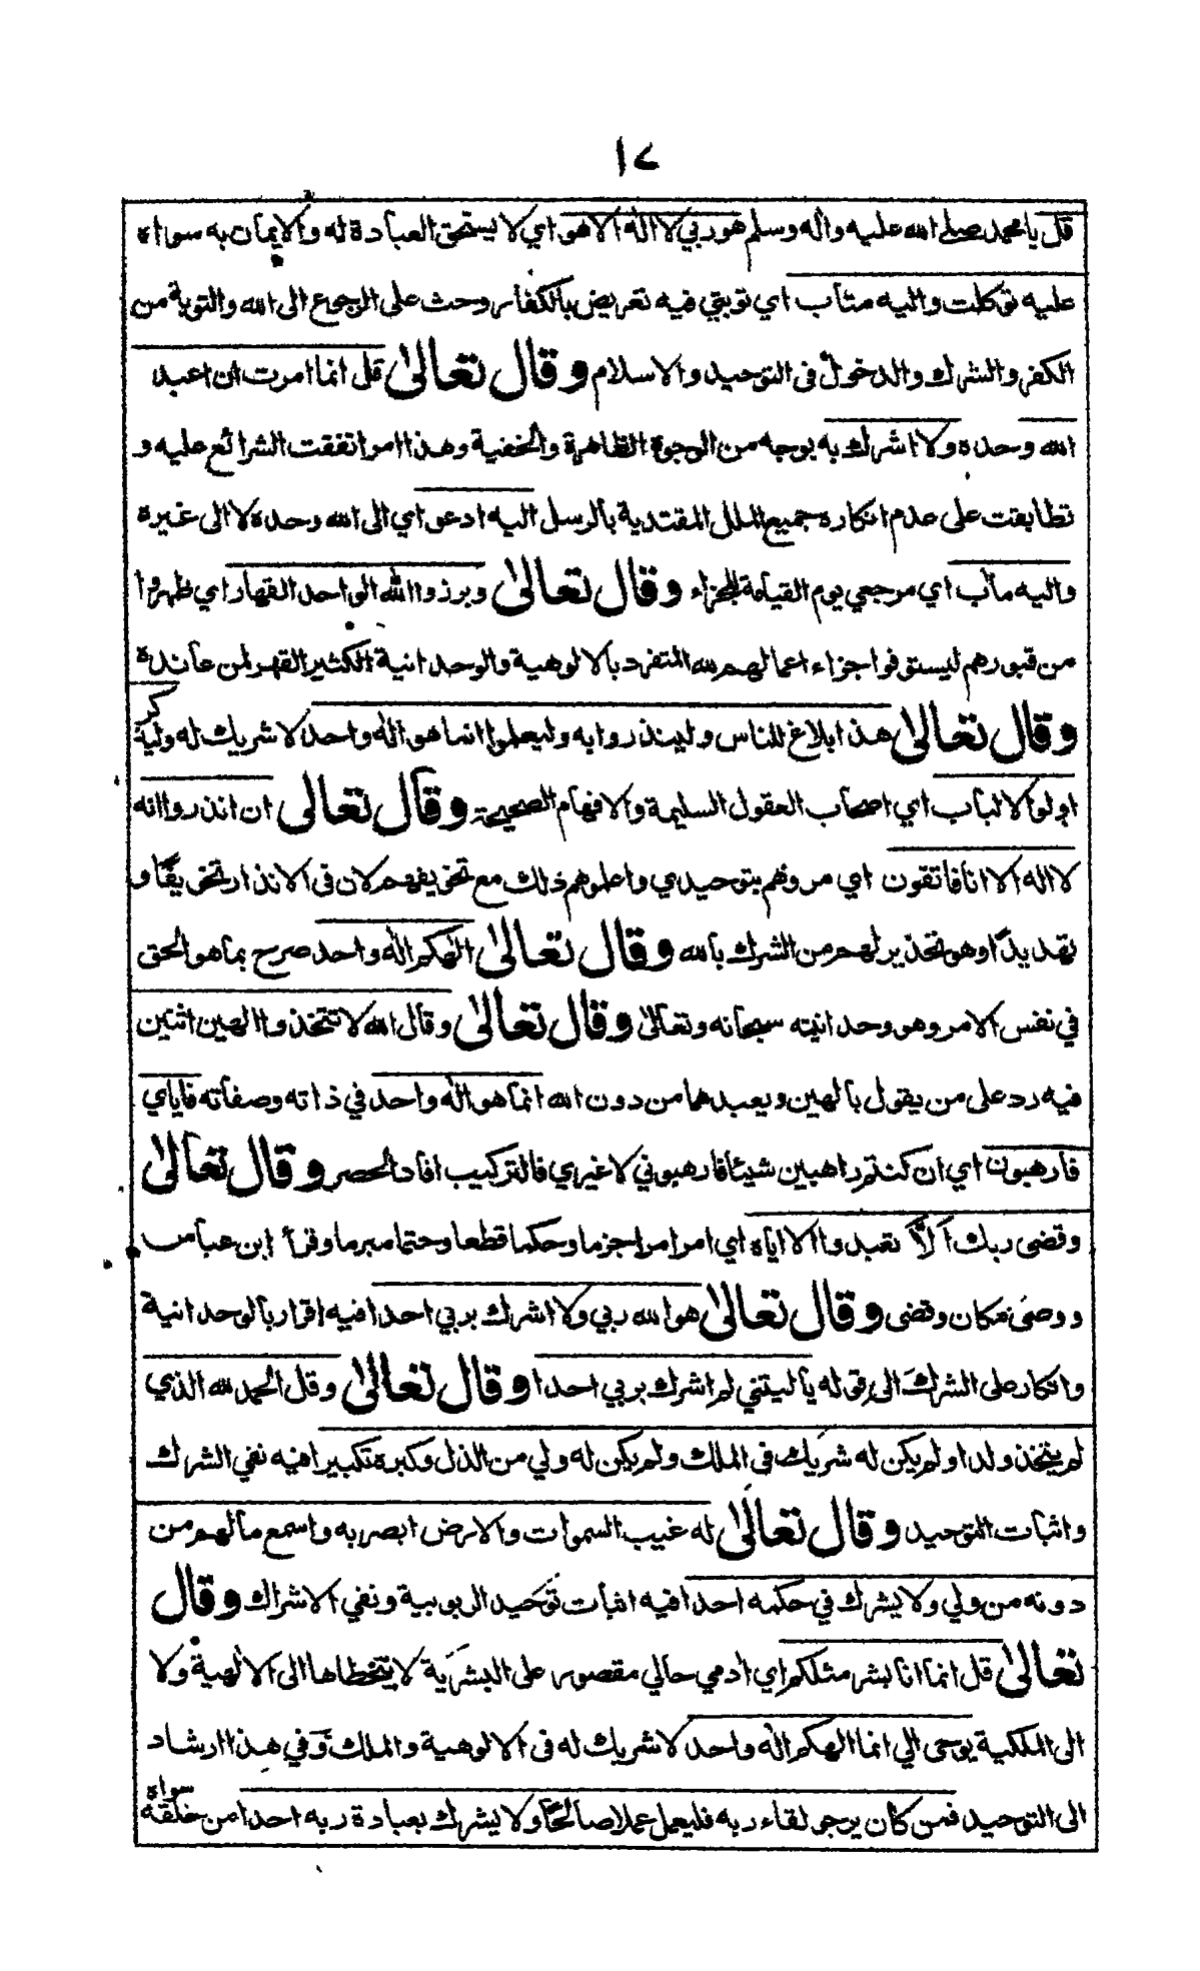 ١٧
قل يا محمد صلى الله عليه واله وسلم هو ربي لا اله الا هو اي لا يستحق العبادة له والايمان به سواه
عليه توكلت واليه متاب اي توبتي فيه تعريض بالكفار وحث على الرجوع الى الله والتوبة من
الكفر والشرك والدخول في التوحيد والاسلام وقال تعالىٰ قل انما امرت ان اعبد
الله وحده ولا اشرك به بوجه من الوجوه الظاهرة والخفية وهذا امر اتفقت الشرائع عليه و
تطابقت على عدم انكاره جميع الملل المقتدية بالرسل اليه ادعو اي الى الله وحده لا الى غيره
واليه مآب اي مرجعي يوم القيامة للجزاء وقال تعالىٰ وبرزوا لله الواحد القهار اي ظهروا
من قبورهم ليستوفوا جزاء اعمالهم لله المتفرد بالالوهية والوحدانية الكثير القهر لمن عانده
وقال تعالىٰ هذا بلاغ للناس ولينذروا به وليعلموا انما هو اله واحد لا شريك له وليذكر
اولوا الالباب اي اصحاب العقول السليمة والافهام الصحيحة وقال تعالى ان انذروا انه
لا اله الا انا فاتقون اي مروهم بتوحيدي واعلموهم ذلك مع تخويفهم لان في الانذار تخويفًا و
تهديدًا وهو تحذير لهم من الشرك بالله وقال تعالىٰ الٰهكم اله واحد صرح بما هو الحق
في نفس الامر وهو وحدانيته سبحانه وتعالىٰ وقال تعالىٰ وقال الله لا تتخذوا الهين اثنين
فيه رد على من يقول بالهين ويعبدهما من دون الله انما هو اله واحد في ذاته وصفاته فاياي
فارهبون اي ان كنتم راهبين شيئا فارهبوني لا غيري فالتركيب افاد الحصر وقال تعالىٰ
وقضى ربك اَلَّا تعبدوا الا اياه اي امر امرا جزما وحكما قطعا وحتما مبرما وقرأ ابن عباس
ووصى مكان وقضى وقال تعالىٰ هو الله ربي ولا اشرك بربي احدا فيه اقرار بالوحدانية
وانكار على الشرك الى قوله يا ليتني لم اشرك بربي احدا وقال تعالىٰ وقل الحمد لله الذي
لم يتخذ ولدا ولم يكن له شريك في الملك ولم يكن له ولي من الذل وكبره تكبيرا فيه نفي الشرك
واثبات التوحيد وقال تعالىٰ له غيب السموات والارض ابصر به واسمع ما لهم من
دونه من ولي ولا يشرك في حكمه احدا فيه اثبات توحيد الربوبية ونفي الاشراك وقال
تعالىٰ قل انما انا بشر مثلكم اي آدمي حالي مقصور على البشرية لا يتخطاها الى الالٰهية ولا
الى الملكية يوحى الي انما الهكم اله واحد لا شريك له في الالوهية والملك وفي هذا ارشاد
الى التوحيد فمن كان يرجو لقاء ربه فليعمل عملا صالحًا ولا يشرك بعبادة ربه احدا من خلقه سواه